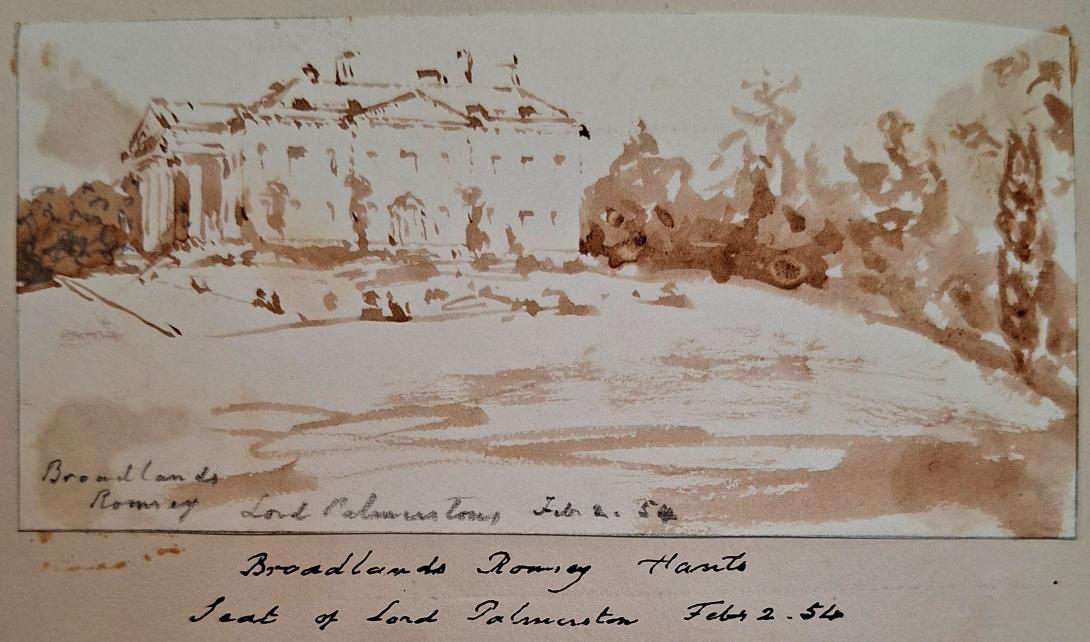 Broadlands
Romsey Lord Palmerstons Feb 2. 54
Broadlands Romsey Hants
Seat of Lord Palmerston Feb 2. 54